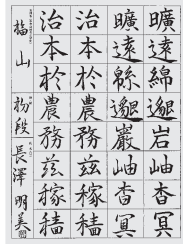 曠遠綿邈岩岫杳冥
曠遠緜邈巖岫杳冥
治本於農務茲稼穡
治本於農務兹稼穡
福山
長澤明美